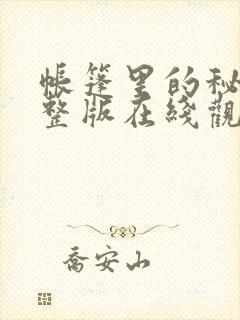 帳篷里的秘
整版在綫觀
喬安山